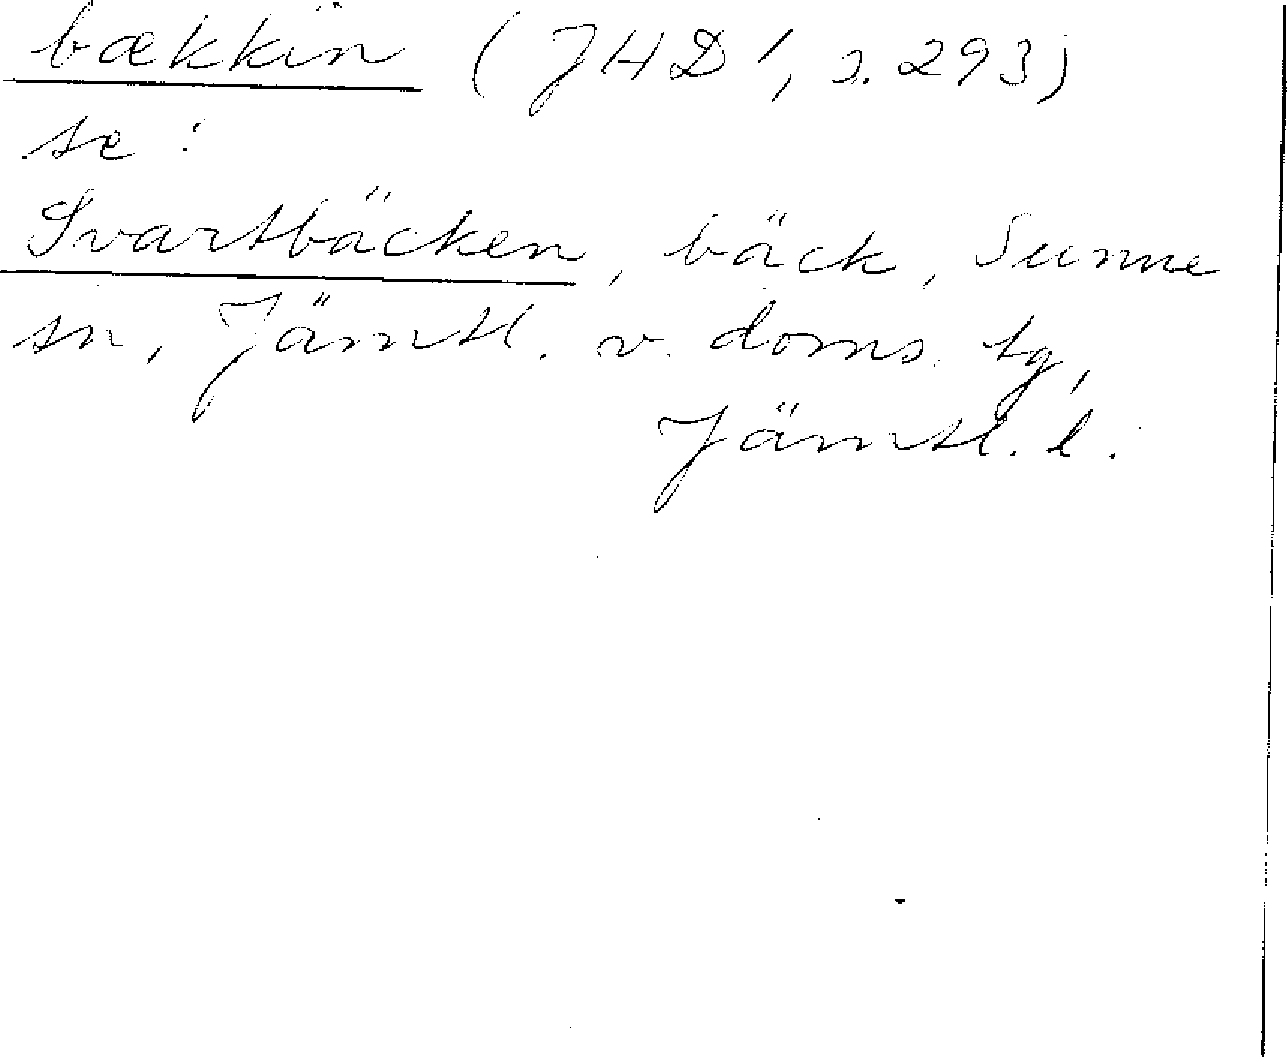 bækkin (JHD 1, s. 293)
se:
Svartbäcken, bäck, Sunne
sn, Jämtl. v. doms. tg,
Jämtl. l.